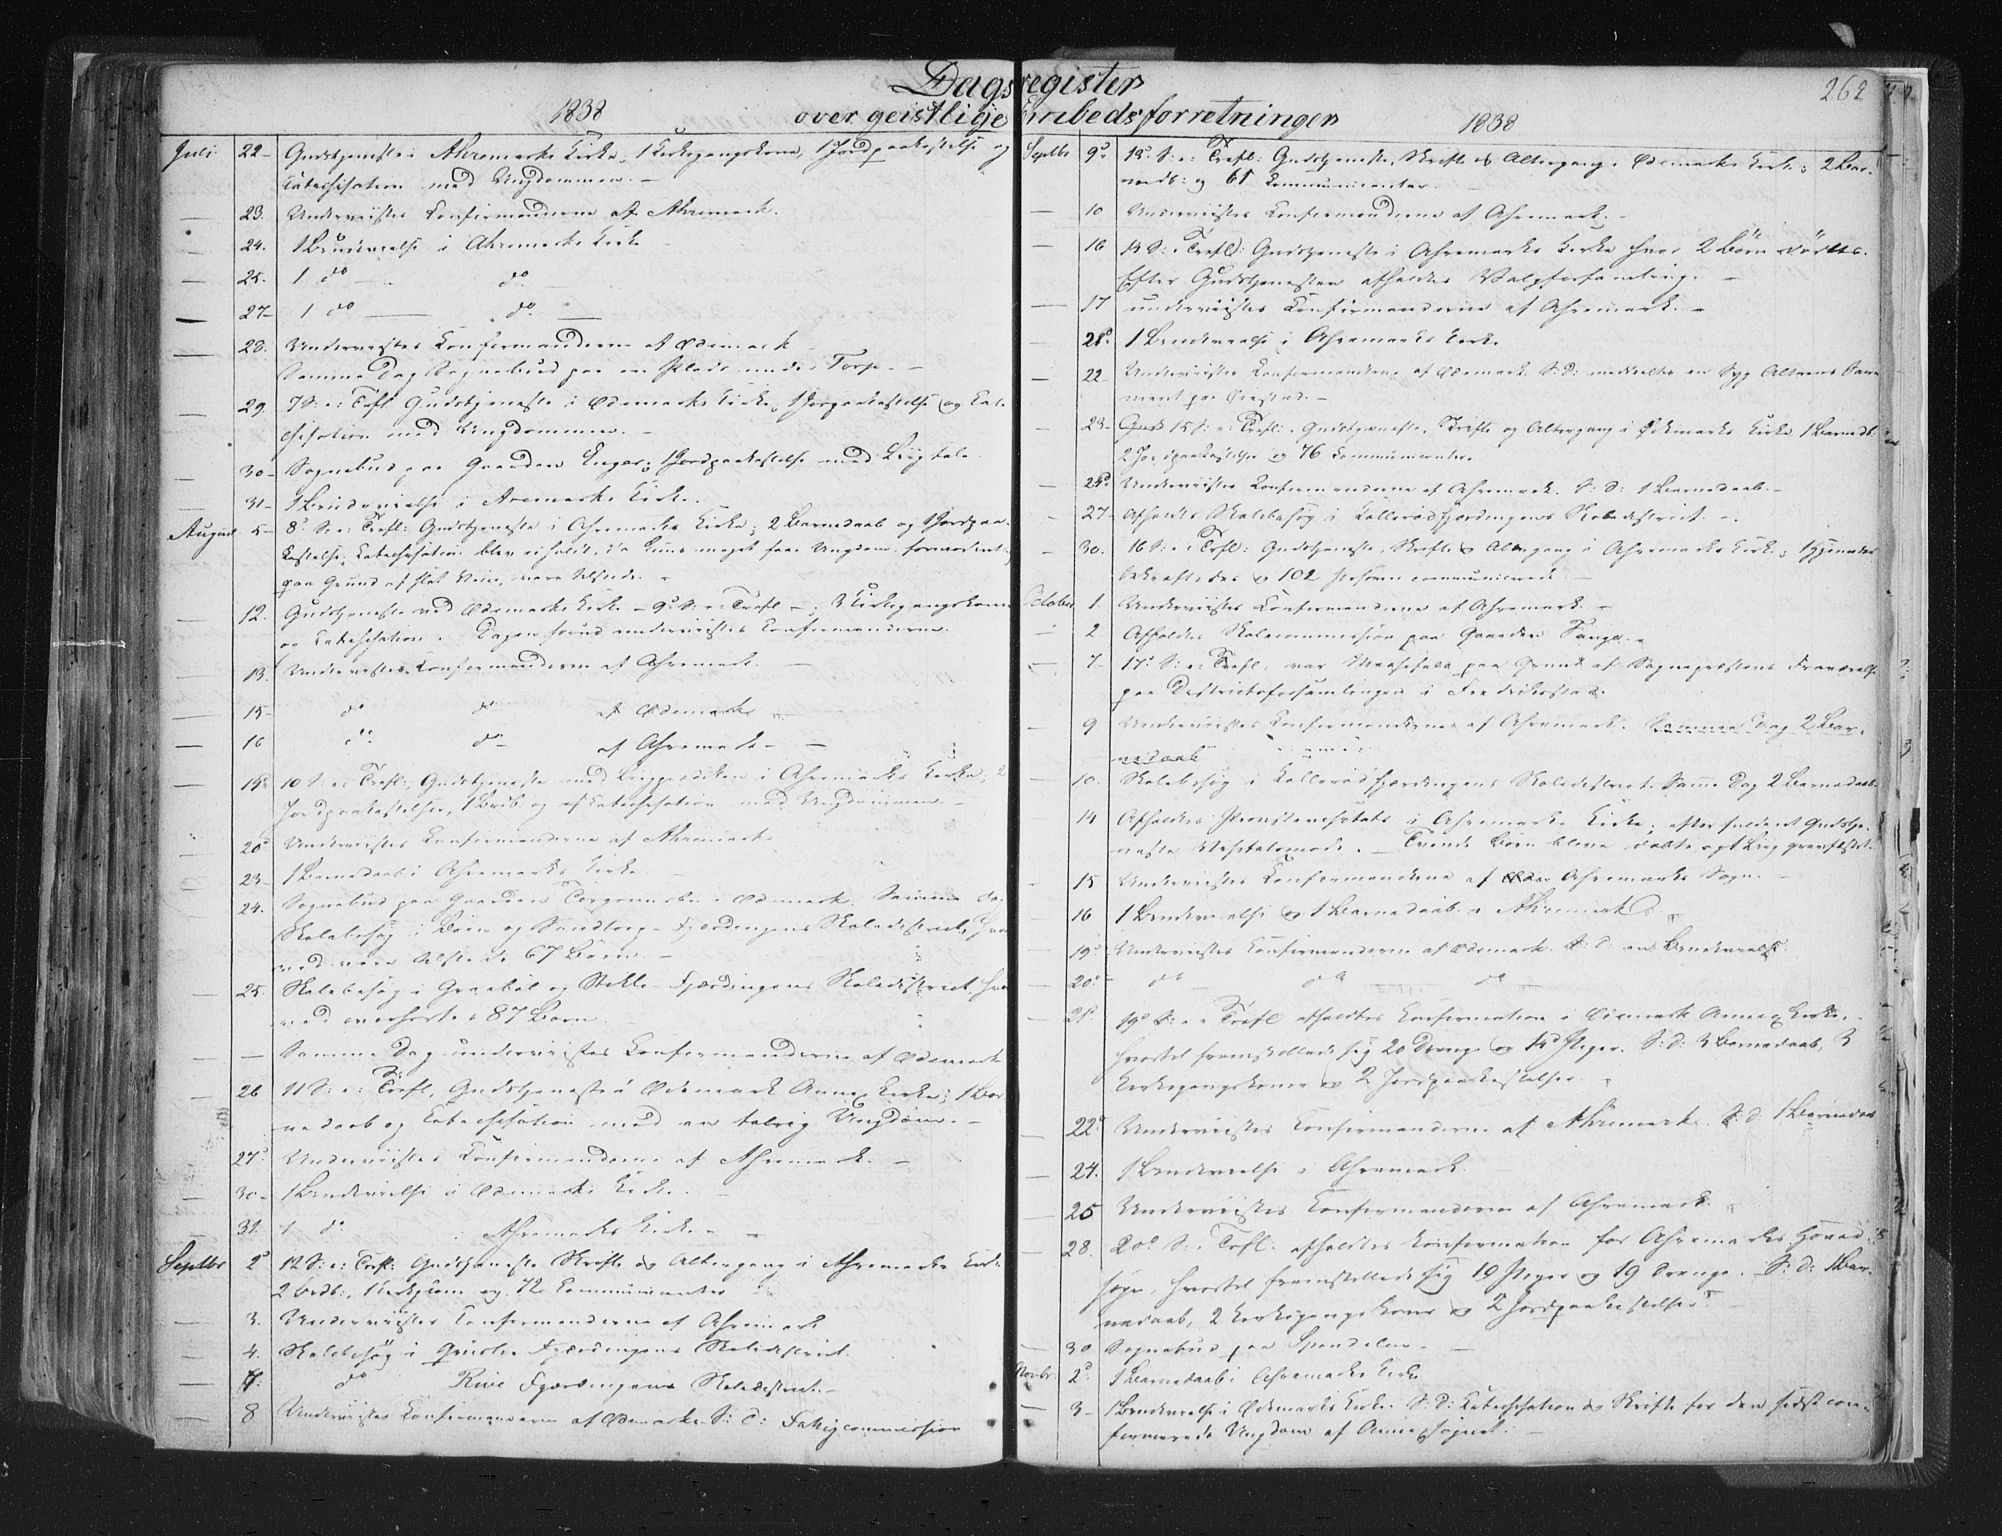 Dagsregister
over geistlige Embedsforretninger
262
1838
Juli 22 Gudstjeneste i Ahremarks Kirke, 1 Kirkegangskone, 1 Jordpaakastelse og
Catechisation med Ungdommen. –
– 23. Underviistes Confirmanderne af Ahremark.
– 24. 1 Brudevielse i Ahremarks Kirke
– 25. 1 do – do –
– 27– 1 do – do –
– 28. Underviistes Confirmanderne af Ødemark
Samme Dag Sognebud paa en Plads under Torp. –
– 29. 7 S: e: Trfl Gudstjeneste i Ødemarks Kirke, 1 Jordpaakastelse og Cate-
chisation med Ungdommen. –
– 30– Sognebud paa Gaarden Enger; 1 Jordpaakastelse med Liigtale
– 31– 1 Brudevielse i Aremarks Kirke.
August 5– 8d S: e: Trefl: Gudstjeneste i Ahremarks Kirke; 2 Barnedaab og 1 Jordpaa-
kastelse; Catechisation blev ei holdt, da kuns meget faae Ungdom, formodentlig
paa Grund af slet Veir, vare tilstede. –
– 12. Gudstjeneste ved Ødemarks Kirke – 9d S: e: Trefl –; 3 Kirkegangskoner
og Catechisation. Dagen forud underviistes Confirmanderne.
– 13. Underviistes Confirmanderne af Ahremark. –
– 15– do do af Ødemark –
– 16 do do – af Ahremark – –
– 19d 10 S: e: Trefl: Gudstjeneste med i Ahremarks Kirke, 2
Jordpaakastelser, 1 Brdb: og Catechisation med Ungdommen. –
– 20d Underviistes Confirmanderne af Ahremark
– 23– 1 Barnedaab i Ahremarks Kirke
– 24. Sognebud paa Gaarden i Ødemark. Samme Dag
Skolebesøg i Bøen og Sandtorp– Fjerdingens Skoledistrict, hvor-
ved vare tilstede 67 Børn. –
– 25. Skolebesøg i og – Fjerdingens Skoledistrict, hvor-
ved overhørtes 87 Børn
– Samme Dag underviistes Confirmanderne af Ødemark
– 26 11 S: e: Trefl, Gudstjeneste i Ødemark Annex Kirke; 1 Bar-
nedaab og Catechisation med en talrig Ungdom. –
– 27d Underviistes Confirmanderne af Ahremark. –
– 30– 1 Brudevielse i Ødemarks Kirke.
– 31. 1 do Ahremarks Kirke –
Septbr 2d 12 S: e: Trefl: Gudstjeneste Skrifte og Altergang i Ahremarks Kirke
2 Brdb:, 1 Kirkgkone og 72 Communicanter
– 3. Underviistes Confirmanderne af Ahremark
– 4. Skolebesøg i Fjerdingens Skoledistrict.
– 7. do Rive Fjerdingens Skoledistrict. –
– 8 Underviistes Confirmanderne af Ødemark. S: D: Fattigcommission
1838
Septbr 9d 13d S: e: Trefl: Gudstjeneste, Skrifte og Altergang i Ødemarks Kirke; 2 Bar-
nedb: og 61 Communicanter.
– 10 Underviistes Confirmanderne af Ahremark. –
– 16 14 S: e: Trefl: Gudstjeneste i Ahremarks Kirke hvor 2 Børn døbtes.
Efter Gudstjenesten afholdtes Valgforsamling. –
– 17 underviistes Confirmanderne af Ahremark. –
– 21d 1 Brudevielse i Ahremarks Kirke
– 22 Underviistes Confirmanderne af Ødemark S: D: meddeltes en Syg Alterens Sacra-
ment paa –
– 23– 15 S: e: Trefl: Gudstjeneste, Skrifte og Altergang i Ødemarks Kirke 1 Barnedb:
2 Jordpaakastelse og 76 Communicanter.
– 25d Underviistes Confirmanderne af Ahremark. S: D: 1 Barnedaab. –
– 27– Afholdt Skolebesøg i Kollerødfjerdingens Skoledistrict. –
– 30. 16 S: e: Trfl: Gudstjeneste, Skrifte og Altergang i Ahremarks Kirke; 1 Hjemmedaab
bekræftedes og 102 Personer communicerede
October 1. Underviistes Confirmanderne af Ahremark. –
– 2 Afholdes Skolecommission paa Gaarden Fange. –
– 7– 17d S: e: Trefl: var Messefald paa Grund af Sognepræstens Fraværelse
paa Districtsforsamlingen i Fredrikstad.
– 9 Underviistes Confirmanderne af Ahremark. Samme Dag 2 Bar-
nedaab
– 10. Skolebesøg i Kollerødfjerdingens Skoledistrict. Samme Dag 2 Barnedaab.
– 14 Afholdtes Provstevisitats i Ahremarks Kirke; efter fuldendt Gudstje-
neste . – Tvende Børn bleve døbte og 1 Liig gravfæstet.
– 15 Underviistes Confirmanderne af Ahremarks Sogn. –
– 16 1 Brudevielse og 1 Barnedaab i Ahremark
– 19d Underviistes Confirmanderne af Ødemark. S: D: en Brudevielse
– 20d do do do
– 21. 19d S: e: Trefl afholdtes Confirmation i Ødemark Annex Kirke,
hvortil fremstillede sig 20 Drenge og 15 Piger. S: D: 3 Barnedaab, 3
Kirkegangskoner og 2 Jordpaakastelser
– 22d Underviistes Confirmanderne af Ahremark. S: D: 1 Barnedaab
– 24. 1 Brudevielse i Ahremark
– 25 Underviistes Confirmanderne af Ahremark.
– 28. 20d S: e: Trfl. afholdtes Confirmation for Ahremarks Hoved-
sogn, hvortil fremstillede sig 19 Piger og 19 Drenge. S: D: 1 Bar-
nedaab, 2 Kirkegangskoner og 2 Jordpaakastelser
– 30 Sognebud paa –
Novbr. 2d 1 Barnedaab i Ahremarks Kirke
– 3– 1 Brudevielse i Ødemarks Kirke. S: D: Catechisation og Skrifte for den sidst con-
firmerede Ungdom af Annexsognet. –